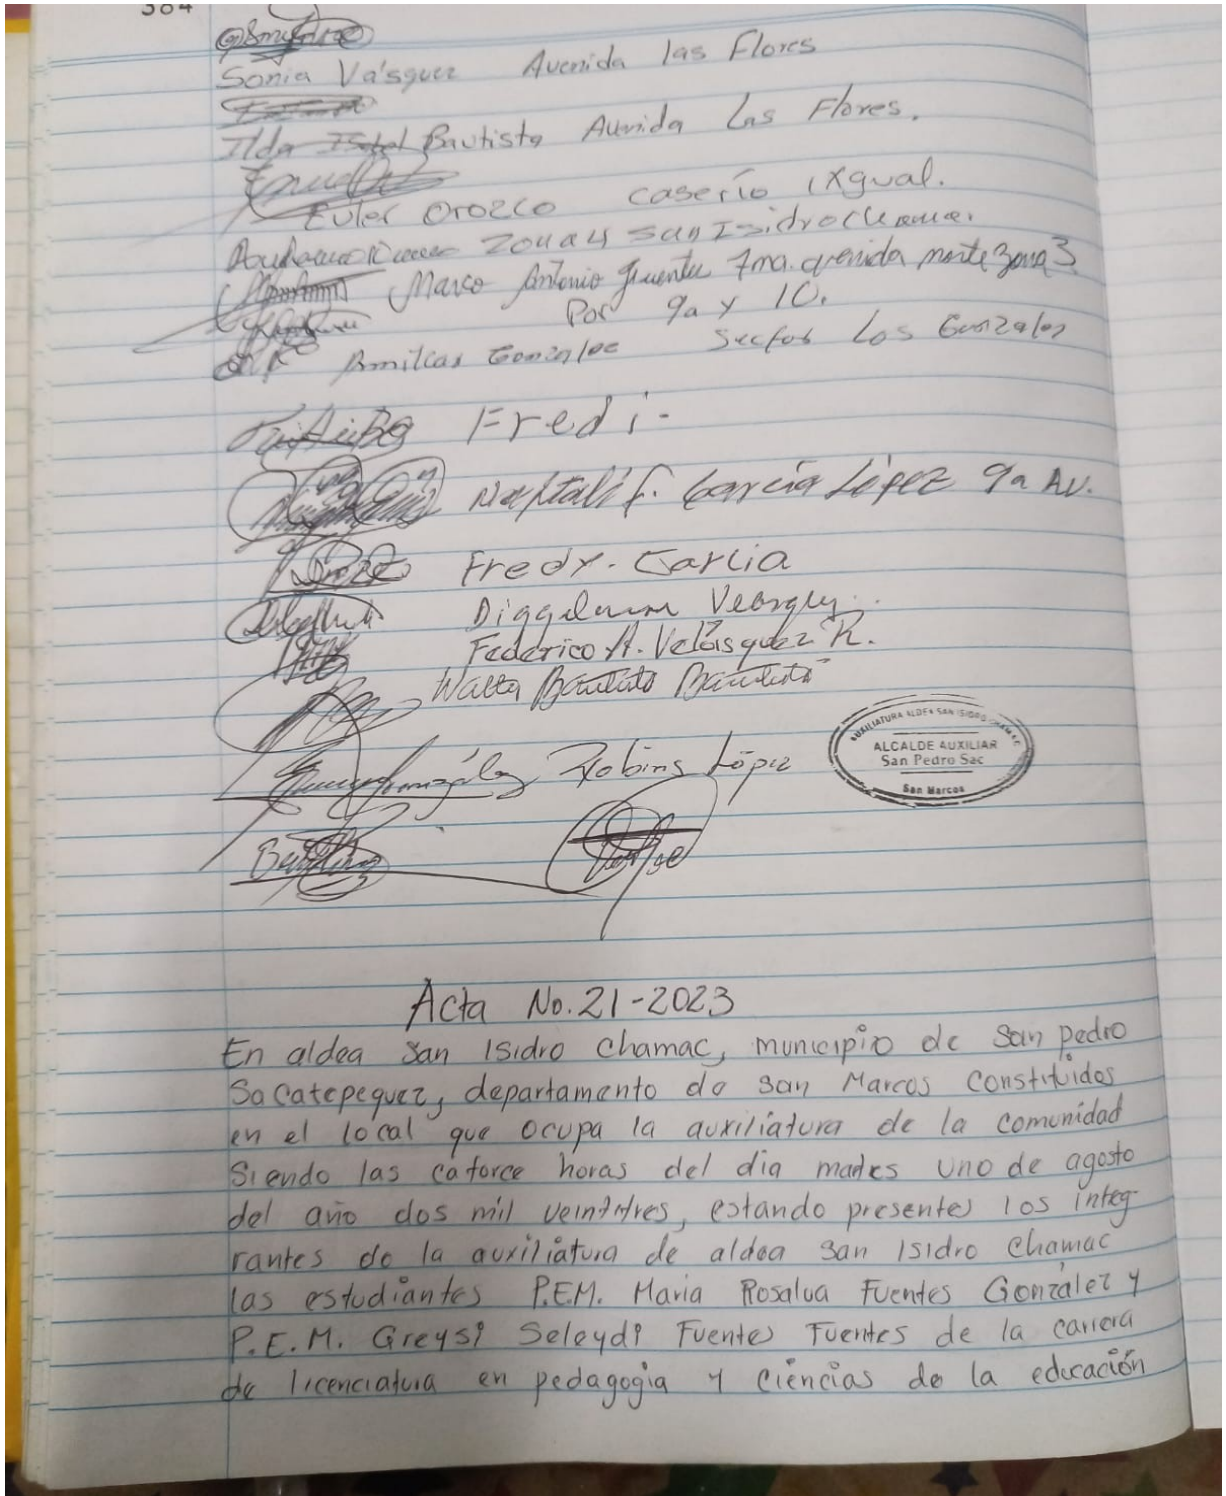 304
Sonia Vásquez Avenida las Flores
Ilda Isabel Bautista Avenida Las Flores.
Euler Orozco caserío ixgual.
Zona 4 San Isidro Chamac.
Marco Antonio Fuentes 7ma. avenida norte zona 3
Por 9a y 10.
Amilcar Gonzalez Sector Los Gonzalez
Fredi-
Neftalí f. García López 9a Av.
Fredy. Garcia
Federico A. Velásquez R.
Walter Bautista Bautista
AUXILIATURA ALDEA SAN ISIDRO CHAMAC
ALCALDE AUXILIAR
San Pedro Sac
San Marcos
González Robins López
Acta No. 21-2023
En aldea San Isidro Chamac, municipio de San Pedro
Sacatepequez, departamento de San Marcos Constituidos
en el local que ocupa la auxiliatura de la comunidad
Siendo las catorce horas del dia martes uno de agosto
del año dos mil veintitres, estando presentes los integ-
rantes de la auxiliatura de aldea San Isidro Chamac
las estudiantes P.E.M. Maria Rosalva Fuentes González y
P.E.M. Greysi Seleydi Fuentes Fuentes de la carrera
de licenciatura en pedagogia y Ciencias de la educación